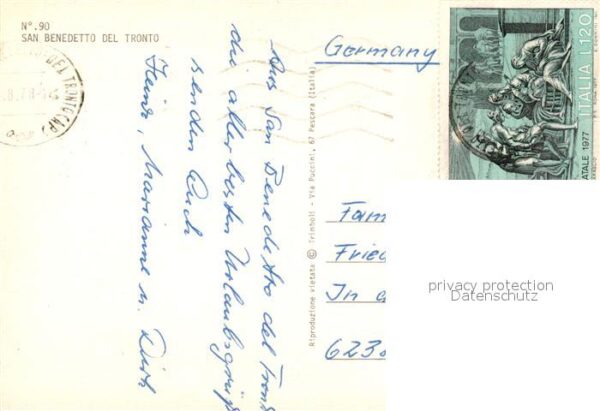 N°.90
SAN BENEDETTO DEL TRONTO
Aus San Benedetto del Tronto
die allerbesten Urlaubsgrüße
senden Euch
Heinz, Marianne u. Dirk
Riproduzione vietata © Trimboli - Via Puccini, 67 Pescara (Italia)
Germany
ITALIA L.120
NATALE 1977
Fam
Fried
In d
6230
privacy protection
Datenschutz